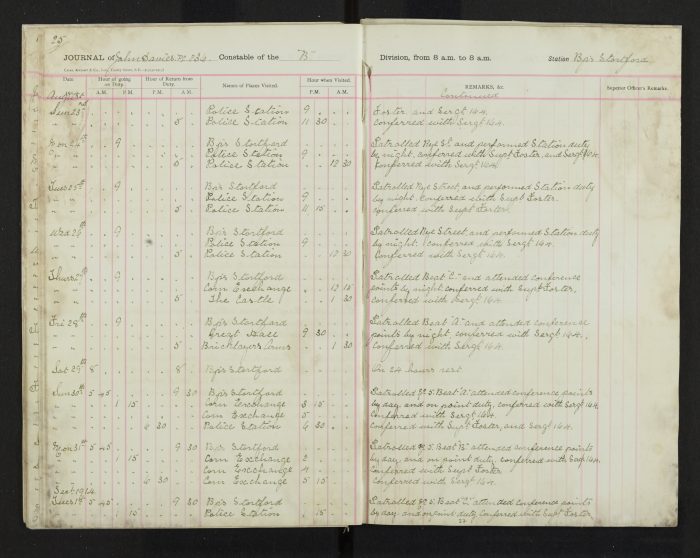 25
JOURNAL of John Davies Nº 234 Constable of the "B" Division, from 8 a.m. to 8 a.m. Station Bp's Stortford
Date Hour of going on Duty. Hour of Return from Duty. Names of Places Visited. Hour when Visited. REMARKS, &c. Superior Officer's Remarks.
A.M. P.M. P.M. A.M. P.M. A.M. Continued
Sun 23rd Police Station 9 Foster and Sergt 164.
" " 5 Police Station 11 30 Conferred with Sergt 164.
Mon 24th 9 Bp's Stortford Patrolled Rye St. and performed Station duty
" " Police Station 9 by night. conferred with Supt Foster, and Sergt 164.
" " 5 Police Station 12 30 Conferred with Sergt 164.
Tues 25th 9 Bp's Stortford Patrolled Rye Street, and performed Station duty
" " Police Station 9 by night. Conferred with Supt Foster.
" " 5 Police Station 11 15 Conferred with Supt Foster.
Wed 26th 9 Bp's Stortford Patrolled Rye Street and performed Station duty
" " Police Station 9 by night. Conferred with Sergt 164.
" " 5 Police Station 12 30 Conferred with Sergt 164.
Thurs 27th 9 Bp's Stortford Patrolled Beat "C" and attended conference
" " Corn Exchange 12 15 points by night conferred with Supt Foster,
" " 5 The Castle 1 30 conferred with Sergt 164.
Fri 28th 9 Bp's Stortford Patrolled Beat "A" and attended conference
" " Great Hall 9 30 points by night. conferred with Sergt 164.
" " 5 Bricklayers Arms 1 30 Conferred with Sergt 164.
Sat 29th 8 8 Bp's Stortford On 24 hours rest
Sun 30th 5 45 9 30 Bp's Stortford Patrolled Nº 5 Beat "A" attended conference points
" " 1 15 Corn Exchange 3 15 by day, and on point duty, conferred with Sergt 164.
" " Corn Exchange 5 Conferred with Sergt 164.
" " 6 30 Police Station 6 30 Conferred with Supt Foster, and Sergt 164.
Mon 31st 5 45 9 30 Bp's Stortford Patrolled Nº 5 Beat "B" attended conference points
" " 1 15 Corn Exchange 2 by day, and on point duty conferred with Sergt 164.
" " Corn Exchange 4 Conferred with Supt Foster
" " 6 30 Corn Exchange 5 15 Conferred with Sergt 164.
Sept 1914
Tues 1st 5 45 9 30 Bp's Stortford Patrolled Nº 5 Beat "C" attended conference points
" " 15 Police Station 15 by day, and on point duty Conferred with Supt Foster,